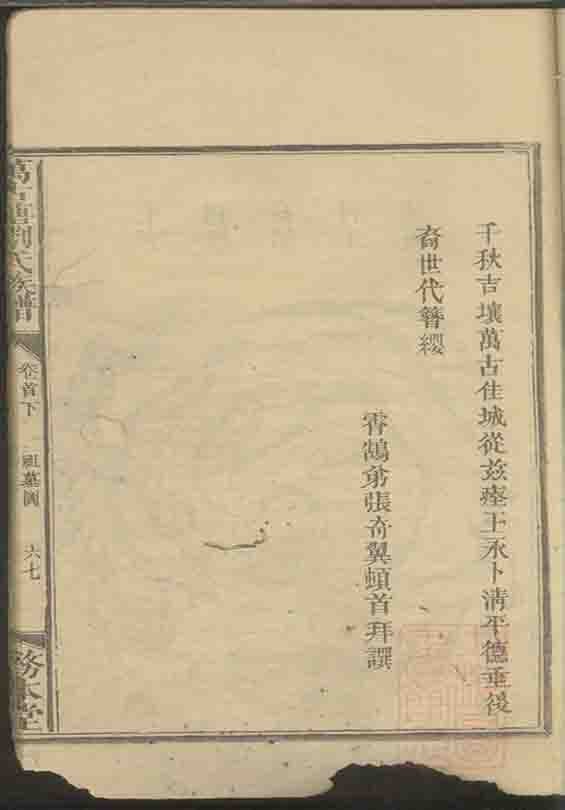 千秋吉壤萬古佳城從玆瘞玉永卜淸平德垂後
裔世代簪纓
霄鵠弟張奇翼頓首拜譔
劉氏族譜
卷首下
祖墓圖
六七
務本堂